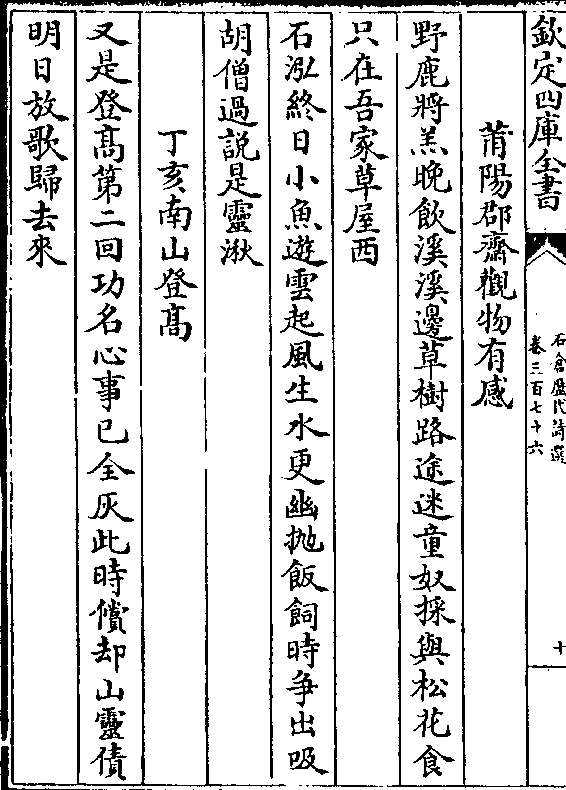 欽定四庫全書
石倉歴代詩選
卷三百七十六
十
莆陽郡齋觀物有感
野鹿將羔晚飲溪溪邊草樹路途迷童奴採與松花食
只在吾家草屋西
石泓終日小魚遊雲起風生水更幽抛飯飼時争出吸
胡僧過説是靈湫
丁亥南山登髙
又是登髙第二回功名心事已全灰此時償却山靈債
明日放歌歸去來